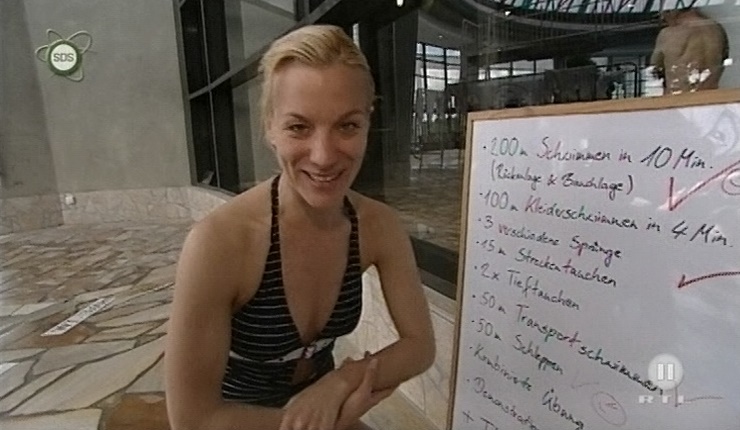 SDS
• 200m Schwimmen in 10 Min.
(Rückenlage & Bauchlage)
• 100m Kleiderschwimmen in 4 Min.
• 3 verschiedene Sprünge
• 15m Streckentauchen
• 2x Tieftauchen
• 50m Transportschwimmen
• 50m Schleppen
• Kombinierte Übung
• Demonstration
+
RTL II